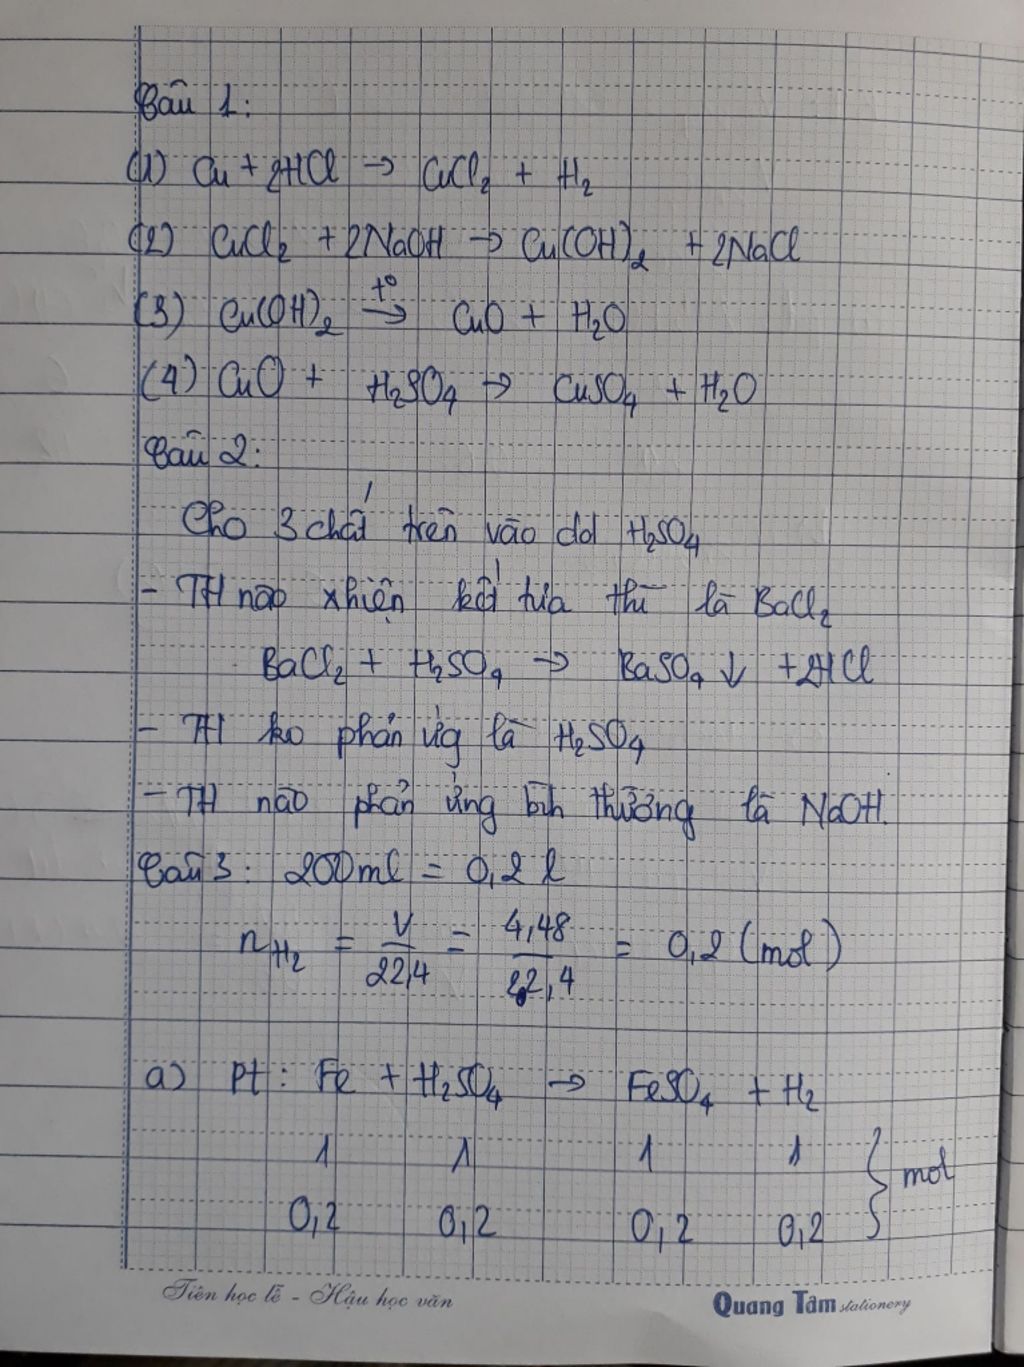 Câu 1:
(1) Cu + 2HCl → CuCl₂ + H₂
(2) CuCl₂ + 2NaOH → Cu(OH)₂ + 2NaCl
(3) Cu(OH)₂ →(t°) CuO + H₂O
(4) CuO + H₂SO₄ → CuSO₄ + H₂O
Câu 2:
Cho 3 chất trên vào dd H₂SO₄
- TH nào xhiện kết tủa thì là BaCl₂
BaCl₂ + H₂SO₄ → BaSO₄ ↓ + 2HCl
- TH ko phản ứg là H₂SO₄
- TH nào phản ứng bình thường là NaOH.
Câu 3: 200ml = 0,2 l
n H₂ = V/22,4 = 4,48/22,4 = 0,2 (mol)
a) Pt: Fe + H₂SO₄ → FeSO₄ + H₂
1 1 1 1 } mol
0,2 0,2 0,2 0,2
Tiên học lễ - Hậu học văn
Quang Tâm stationery